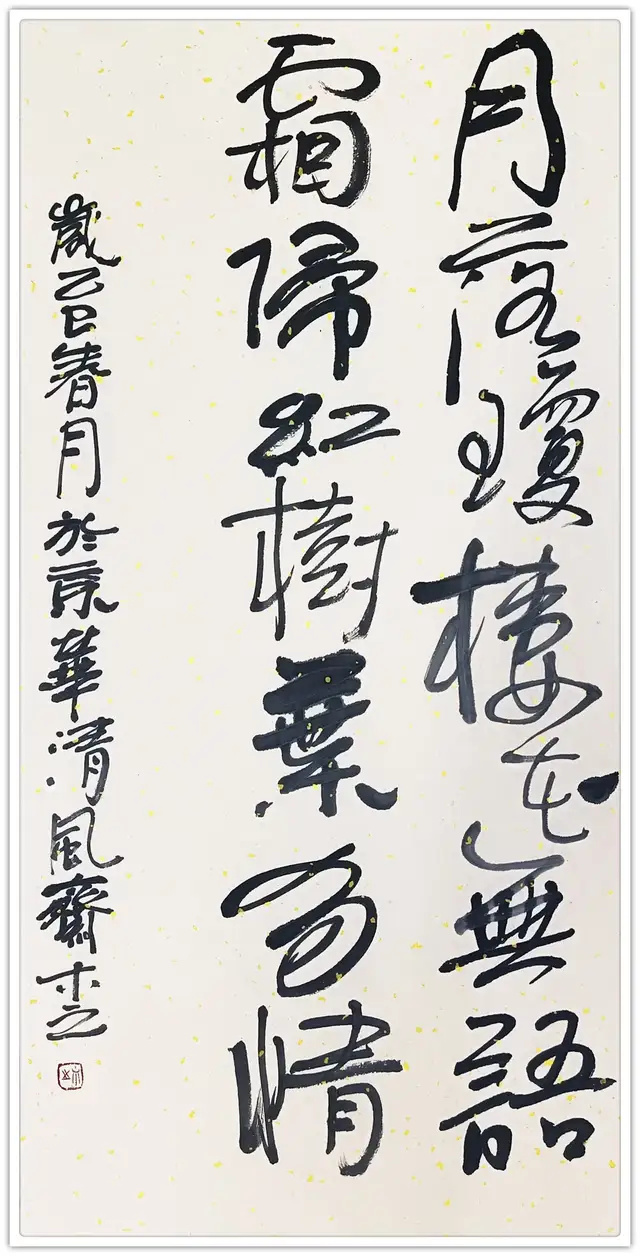 月落瓊樓花無語
霜歸紅樹葉有情
歲乙巳春月於京華清風齋